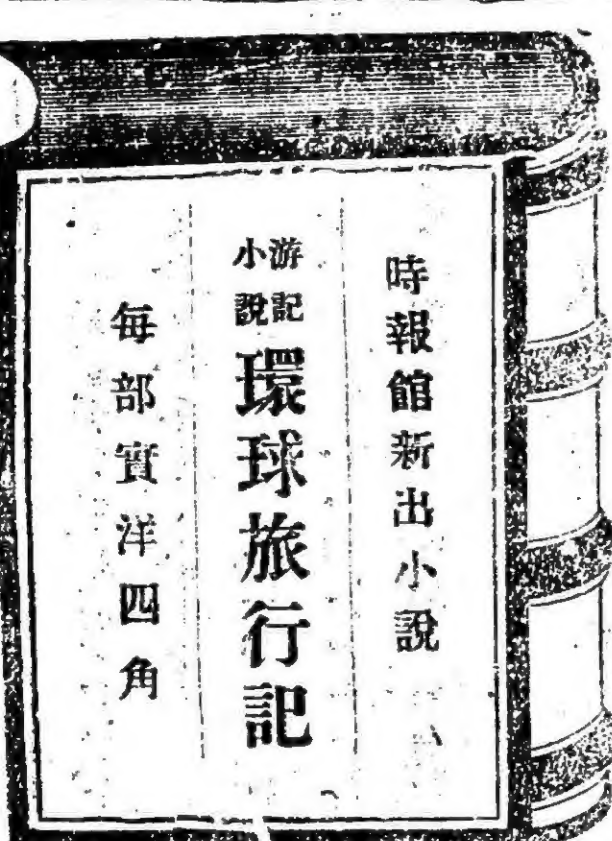 時報館新出小說
游記小說
環球旅行記
每部實洋四角